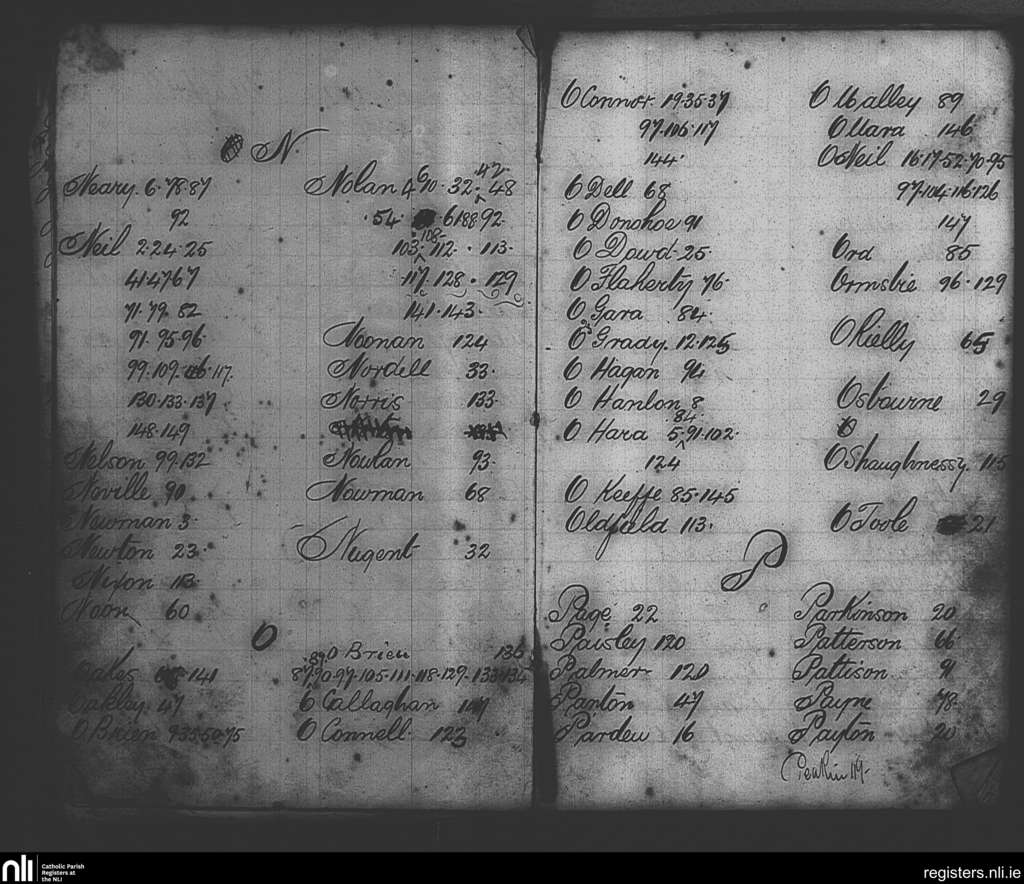 N.
Neary 6·78·87
92
Neil 2·24·25
41·47·67
71·79·82
91·95·96
99·109·116·117
130·133·137
148·149
Nelson 99·132
Neville 90
Newman 3
Newton 23
Nixon 113
Noon 60
Nolan 4 6 10·32· 42 48
·54· 61 88 92·
103· 108 112 · 113·
117·128·129
141·143·
Noonan 124
Nordell 33·
Norris 133·
Nowlan 93·
Nowman 68
Nugent 32
O
Oakes 141
Oakley 47
O Brien 9·33·50·75
O Brien 136
87·90·97·105·111·118·129·133·134
89
O Callaghan 147
O Connell 123
O Connor 19·35·37
97·106·117
144·
O Dell 68
O Donohoe 91
O Dowd 25·
O Flaherty 76·
O Gara 84·
O Grady 12·125
O Hagan 94
O Hanlon 8
O Hara 5· 84· 91·102·
124
O Keeffe 85·145
Oldfield 113·
O Malley 89
O Mara 146
O Neil 16·17·52·70·95
97·104·116·126
147
Ord 85
Ormsbie 96·129
O Rielly 65
Osbourne 29
O Shaughnessy 115
O Toole 21
P
Page 22
Paisley 120
Palmer 120
Panton 47
Pardew 16
Parkinson 20
Patterson 66
Pattison 91
Payne 78·
Payton 20
Peakin 119·
nli
Catholic Parish
Registers at
the NLI
registers.nli.ie